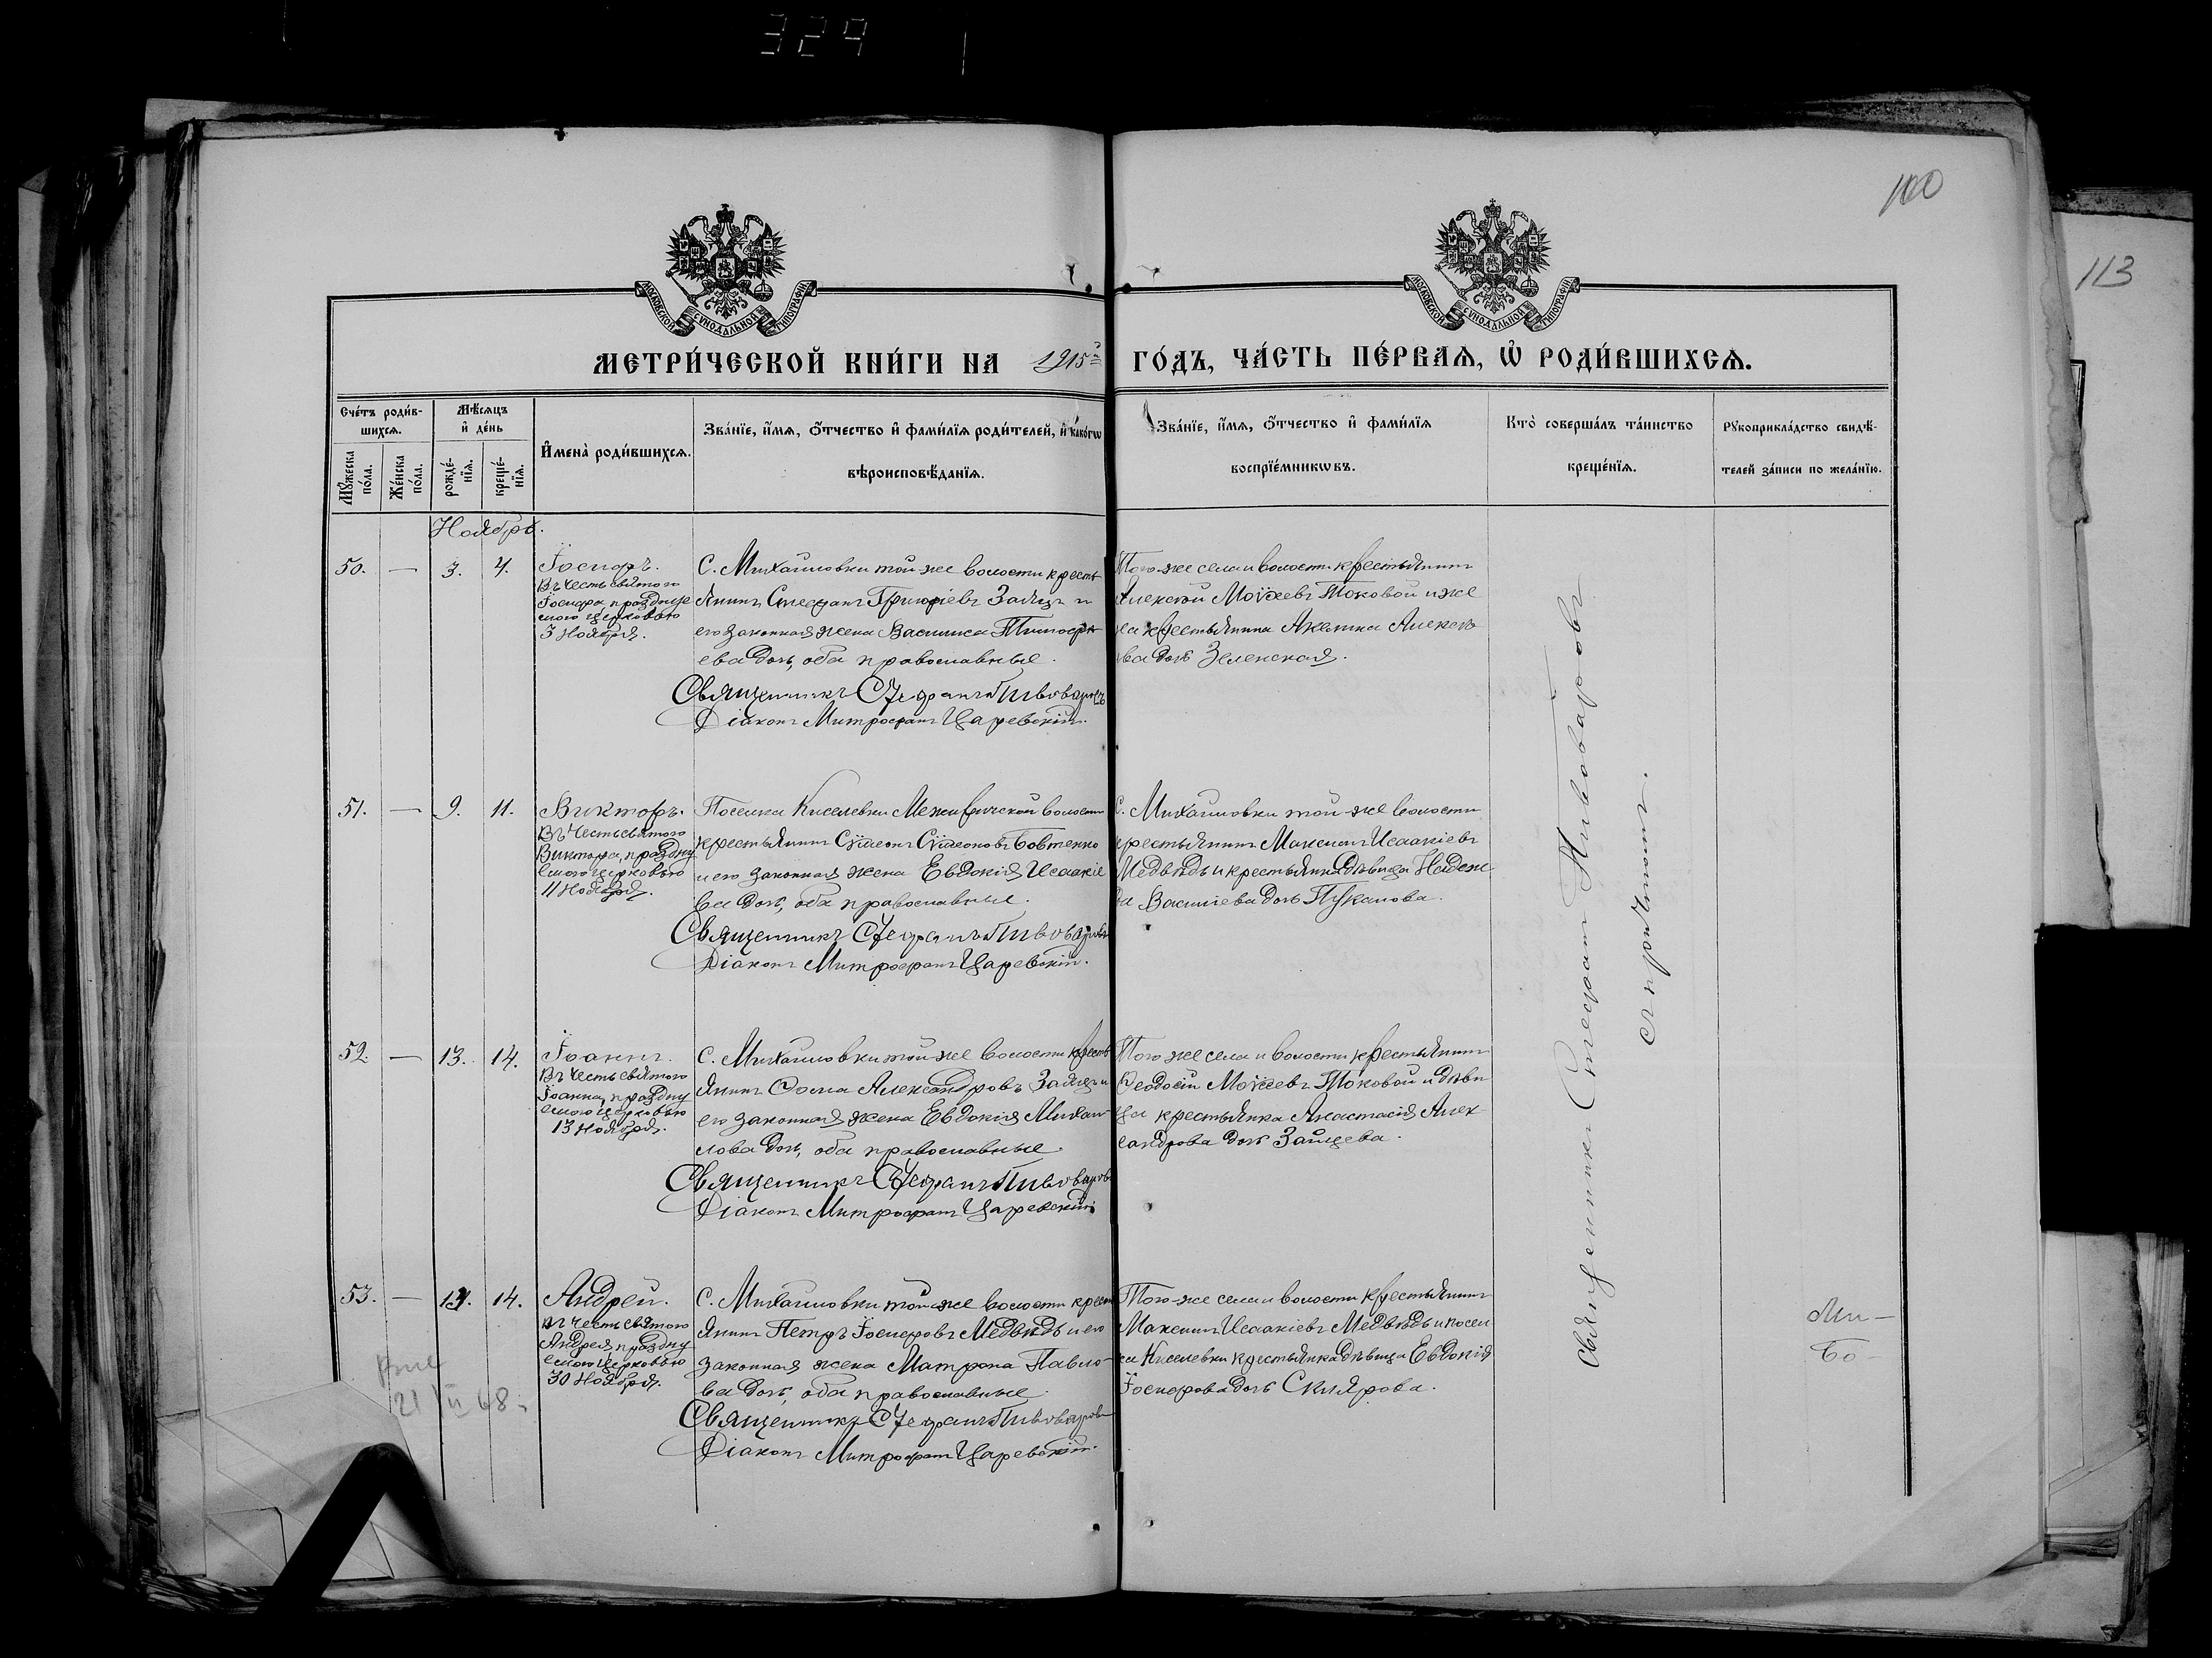 324
100
113
МОСКОВСКОЙ СѴНОДАЛЬНОЙ ТИПОГРАФІИ
МОСКОВСКОЙ СѴНОДАЛЬНОЙ ТИПОГРАФІИ
МЕТРИ́ЧЕСКОЙ КНИ́ГИ НА 1915й ГО́ДЪ, ЧА́СТЬ ПЕ́РВАѦ, Ѽ РОДИ́ВШИХСѦ.
Сче́тъ роди́в-
шихсѧ.
Мѣ́сѧцъ
и҆ де́нь
Мꙋ́жеска
по́ла.
Же́нска
по́ла.
рожде́-
нїѧ.
креще́-
нїѧ.
И҆мена̀ роди́вшихсѧ.
Зва́нїе, и҆́мѧ, ѻ҆́тчество и҆ фами́лїѧ роди́телей, и҆ како́гѡ
вѣроисповѣ́данїѧ.
Зва́нїе, и҆́мѧ, ѻ҆́тчество и҆ фами́лїѧ
воспрїе́мникѡвъ.
Кто̀ соверша́лъ та́инство
креще́нїѧ.
Рꙋкоприкла́дство свидѣ́-
телей за́писи по жела́нїю.
Ноябрь.
50. — 3. 4.
Іосифъ.
Въ честь святого
Іосифа, праздну
емого церковью
3 Ноября.
С. Михайловки той-же волости кресть
янинъ Стефанъ Григоріевъ Заяцъ и
его законная жена Василиса Тимофе
ева дочь, оба православные.
Священникъ Стефанъ Пивоваровъ
Діаконъ Митрофанъ Царевскій.
Того-же села и волости крестьянинъ
Алексѣй Моѵсеевъ Токовой и же
на крестьянина Акелина Алексѣ
ева дочь Зеленская.
51. — 9. 11.
Викторъ.
Въ честь святого
Виктора, праздну
емого церковью
11 Ноября.
Поселка Киселевки Межиричской волости
крестьянинъ Сѵмеонъ Сѵмеоновъ Бовтенко
и его законная жена Евдокія Исаакіе
ва дочь, оба православные.
Священникъ Стефанъ Пивоваровъ
Діаконъ Митрофанъ Царевскій.
С. Михайловки той-же волости
крестьянинъ Максимъ Исаакіевъ
Медвѣдь и крестьянка дѣвица Надеж
да Василіева дочь Пуканова.
52. — 13. 14.
Іоаннъ.
Въ честь святого
Іоанна, праздну
емого церковью
13 Ноября.
С. Михайловки той-же волости кресть
янинъ Ѳома Александровъ Заяцъ и
его законная жена Евдокія Михаи
лова дочь, оба православные.
Священникъ Стефанъ Пивоваровъ
Діаконъ Митрофанъ Царевскій
Того же села и волости крестьянинъ
Ѳеодосій Моѵсеевъ Токовой и дѣви
ца крестьянка Анастасія Алек
сандрова дочь Зайцева.
53. — 14.
Андрей.
Въ честь святого
Андрея, праздну
емого церковью
30 Ноября.
С. Михайловки той-же волости кресть
янинъ Петръ Іосифовъ Медвѣдь и его
законная жена Матрона Павло-
ва дочь, оба православные.
Священникъ Стефанъ Пивоваровъ
Діаконъ Митрофанъ Царевскій.
Того-же села и волости крестьянинъ
Максимъ Исаакіевъ Медвѣдь и посел
ка Киселевки крестьянка дѣвица Евдокія
Іосифова дочь Склярова.
Священникъ Стефанъ Пивоваровъ
съ причтомъ.
Ми-
Бо-